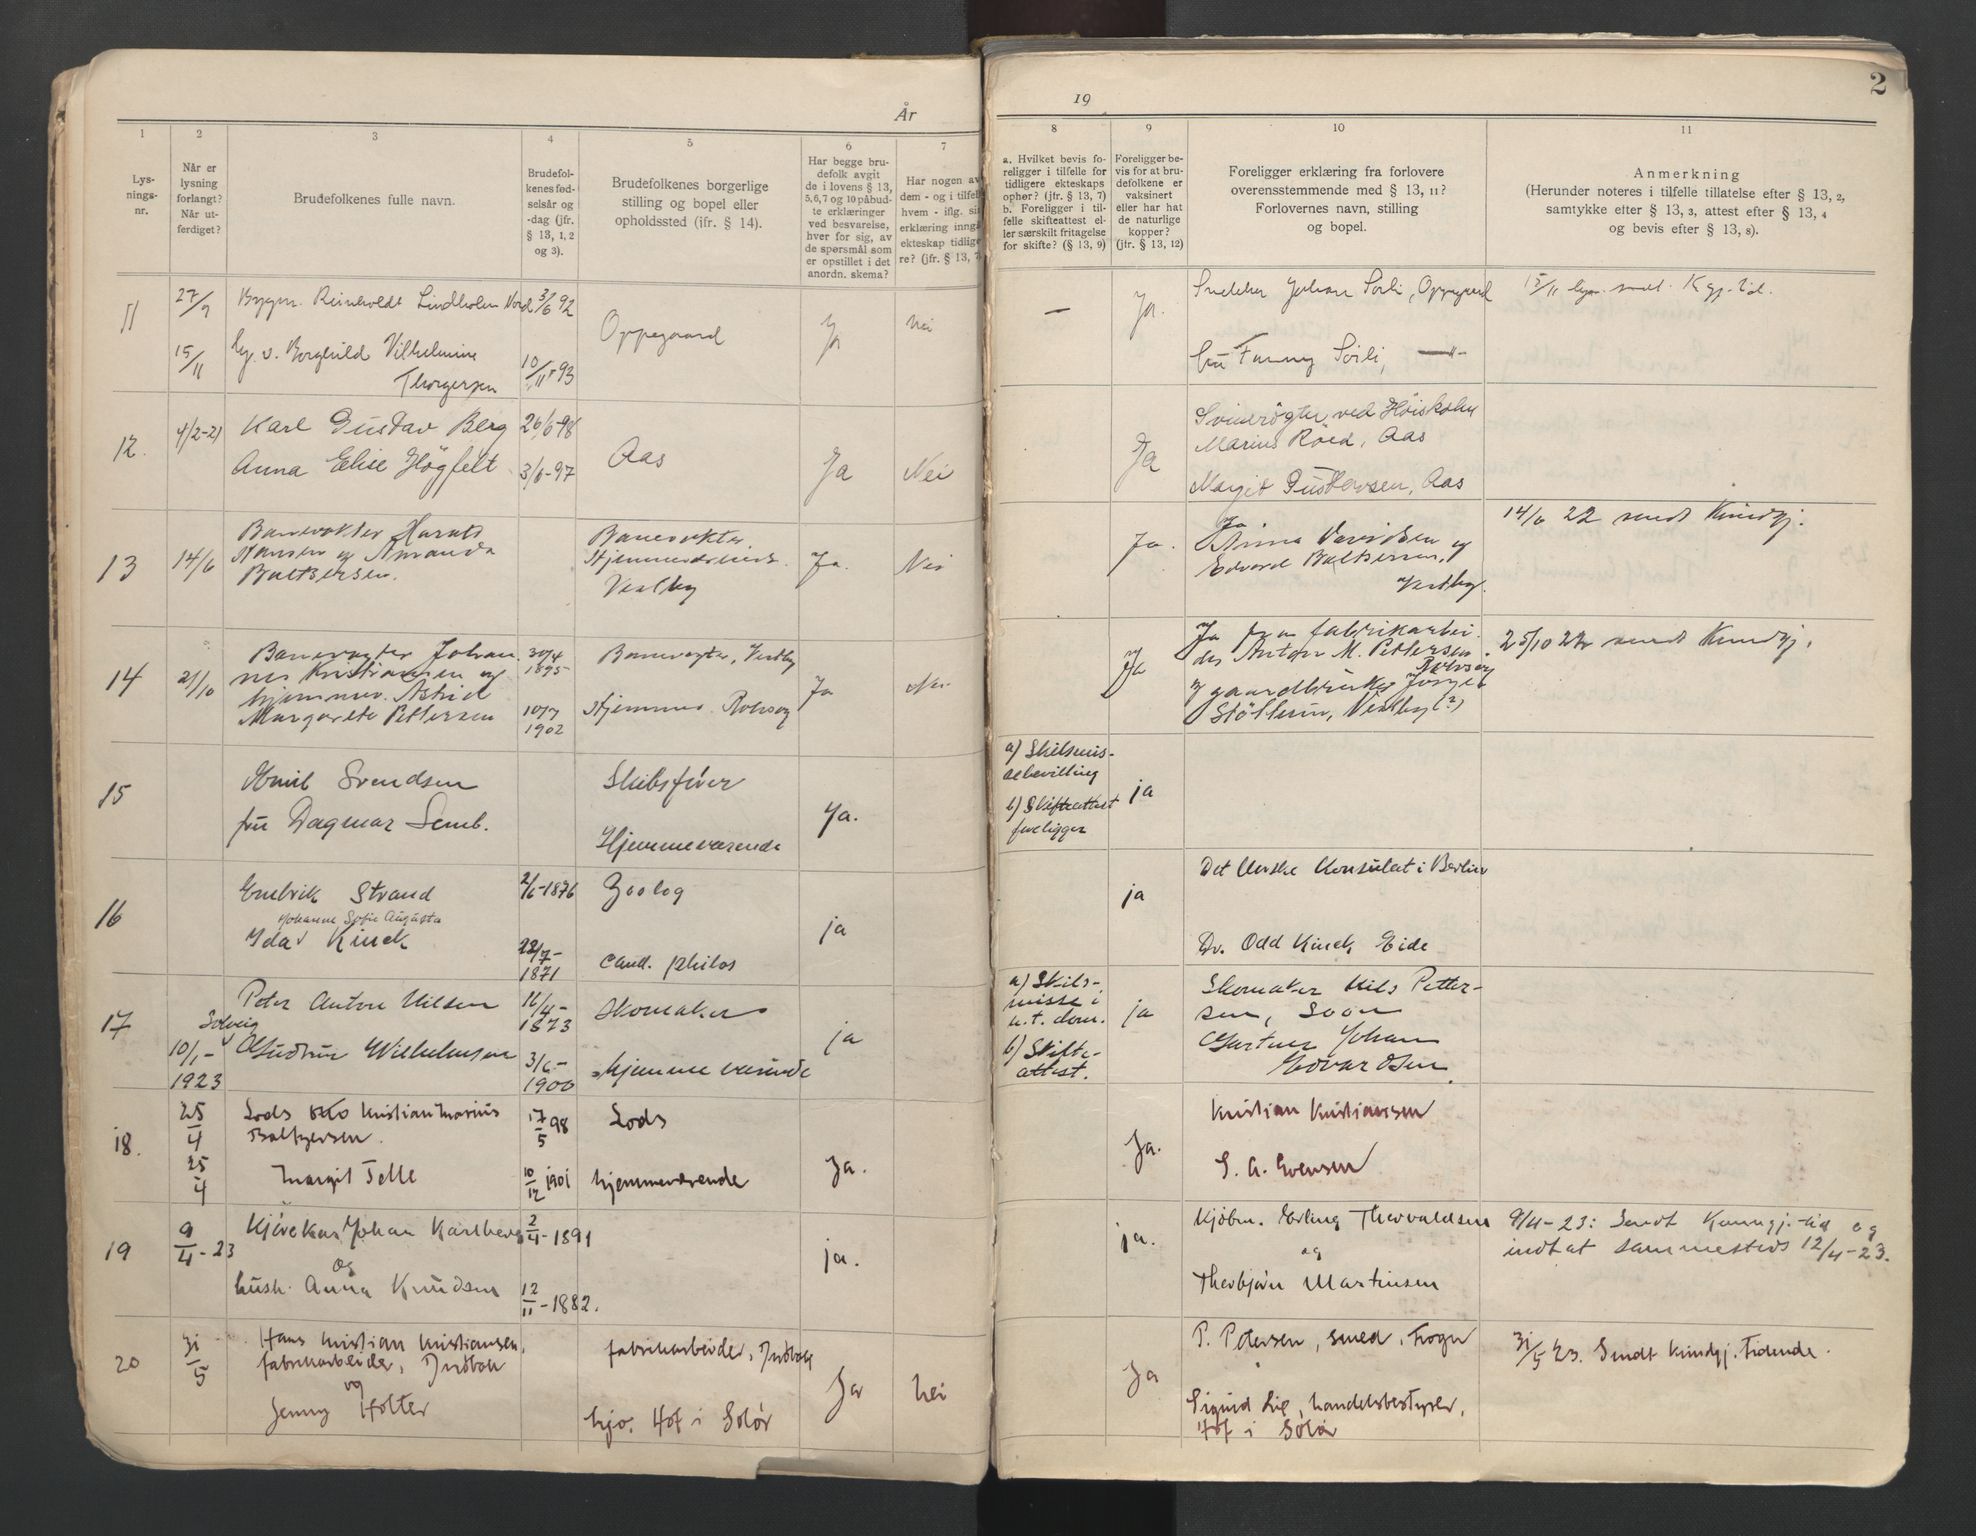 År
19
2
1
2
3
4
5
6
7
8
9
10
11
Lys-
nings-
nr.
Når er
lysning
forlangt?
Når ut-
ferdiget?
Brudefolkenes fulle navn.
Brudefol-
kenes fød-
selsår og
-dag (jfr.
§ 13, 1, 2
og 3).
Brudefolkenes borgerlige
stilling og bopel eller
opholdssted (jfr. § 14).
Har begge bru-
defolk avgitt
de i lovens § 13,
5, 6, 7 og 10 påbud-
te erklæringer
ved besvarelse,
hver for sig, av
de spørsmål som
er opstillet i det
anordn. skema?
Har nogen av
dem - og i tilfelle
hvem - iflg. sin
erklæring inngått
ekteskap tidlige-
re? (jfr. § 13, 7
a. Hvilket bevis fo-
religger i tilfelle for
tidligere ekteskaps
ophør? (jfr. § 13, 7)
b. Foreligger i til-
felle skifteattest el-
ler særskilt fritagelse
for skifte? (§ 13, 9)
Foreligger be-
vis for at bru-
defolkene er
vaksinert
eller har hat
de naturlige
kopper?
(jfr. § 13, 12)
Foreligger erklæring fra forlovere
overensstemmende med § 13, 11?
Forlovernes navn, stilling
og bopel.
Anmerkning
(Herunder noteres i tilfelle tillatelse efter § 13, 2,
samtykke efter § 13, 3, attest efter § 13, 4
og bevis efter § 13, 8).
11
27/9
15/11
Bygm. Reinholdt Lindholm Nord
og v. Borghild Vilhelmine
Thorgersen
3/6 92
10/11 93
Oppegaard
Ja
Nei
—
Ja.
Snekker Johan Sörli, Oppegaard
fru Fanny Sörli, —"—
15/11 lysn. sendt Kgj. tid.
12.
4/2-21
Karl Gustav Berg
Anna Elise Högfelt
26/6-98
3/6-97
Aas
Ja
Nei
Ja
Svinerögter ved Höiskolen
Marius Röed, Aas
Margit Gustavsen, Aas
13
14/6
Banevokter Harald
Hansen og Amanda
Baltsersen.
Banevokter
Hjemmeværende.
Vestby
Ja.
Nei
Ja.
Ja.
Anna Davidsen og
Edvard Baltsersen,
Vestby.
14/6 22 sendt Kundgj.
14
21/10
Banevogter Johan
nes Kristiansen og
hjemmev. Astrid
Margarete Pettersen
30/4
1895
10/7
1902
Banevogter, Vestby
Hjemmev.
Ja
Nei
Ja
Ja fra fabrikarbei-
der Anton M. Pettersen
og gaardbruker
Vestby (?)
25/10 22 sendt Kundgj.
15
Emil Svendsen
fru Dagmar Semb.
Skibsförer
Hjemmeværende
Ja.
a) Skilsmis-
sebevilling
b) Skifteattest
foreligger
ja
16
Embrik Strand
Johanne Sofie Augusta
Ida Kinck
2/6-1876
22/7-
1871
Zoolog
cand. philos
ja
ja
Det Norske Konsulat i Berlin
Dr. Odd Kinck Eide
17
10/1-
1923
Peter Anton Nilsen
Solveig
Gudrun Wilhelmsen
11/4-
1873
3/6-
1900
Skomaker
hjemmeværende
ja
a) Skils-
misse i
h. t. dom.
b) Skifte-
attest.
ja
Skomaker Nils Petter-
sen, Soon
Gartner Johan
Edvardsen.
18.
25/4
25/4
Lods Kristian Marius
Baltzersen.
Margit Telle
17/5 98
10/12 1901
Lods
hjemmeværende
Ja.
Ja.
Kristian Kristiansen
S. A. Evensen
19
9/4-23
Kjörekar Johan Karlberg
og
hush. Anna Knudsen
2/4-1891
12/11-1882.
ja.
ja.
Kjöbm. Erling Thorvaldsen
og
Thorbjörn Martinsen
9/4-23: Sendt Kunngj.-tid og
indtat sammesteds 12/4-23.
20
31/5
Hans Kristian Kristiansen,
fabrikarbeider, Indbak
og
Jenny Holter
fabrikarbeider, Indbak
hjo. Hof i Solör
Ja
Nei
Ja
P. Petersen, smed, Frogn
Sigurd Lie, handelsbestyrer,
Hof i Solör
31/5 23. Sendt Kundgj. Tidende.